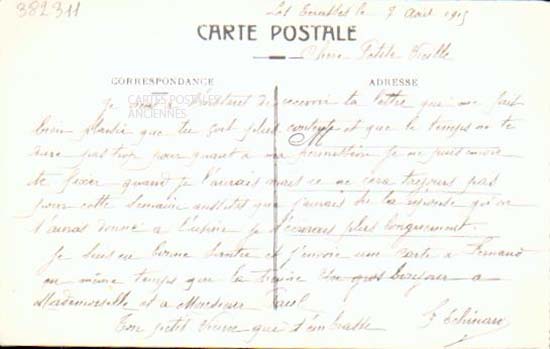 382311
le 7 Août 1915
CARTE POSTALE
Chère Petite Vieille
CORRESPONDANCE
ADRESSE
CARTES POSTALES
ANCIENNES
Je à l'instant de recevoir ta lettre qui me fait
bien plaisir que tu soit plus contente et que le temps ne te
dure pas trop pour quant a ma permission je ne puis encore
te fixer quand je l'aurais mais ce ne sera toujours pas
pour cette semaine aussitot que j'aurais eu la reponse qu'on
m'auras donné a l'usine je t'écrirais plus longuement.
Je suis en bonne santée et j'envoie une carte a Fernand
en même temps que la tienne Un gros bonjour a
Mademoiselle et a Monsieur Paul
Ton petit qui t'embrasse